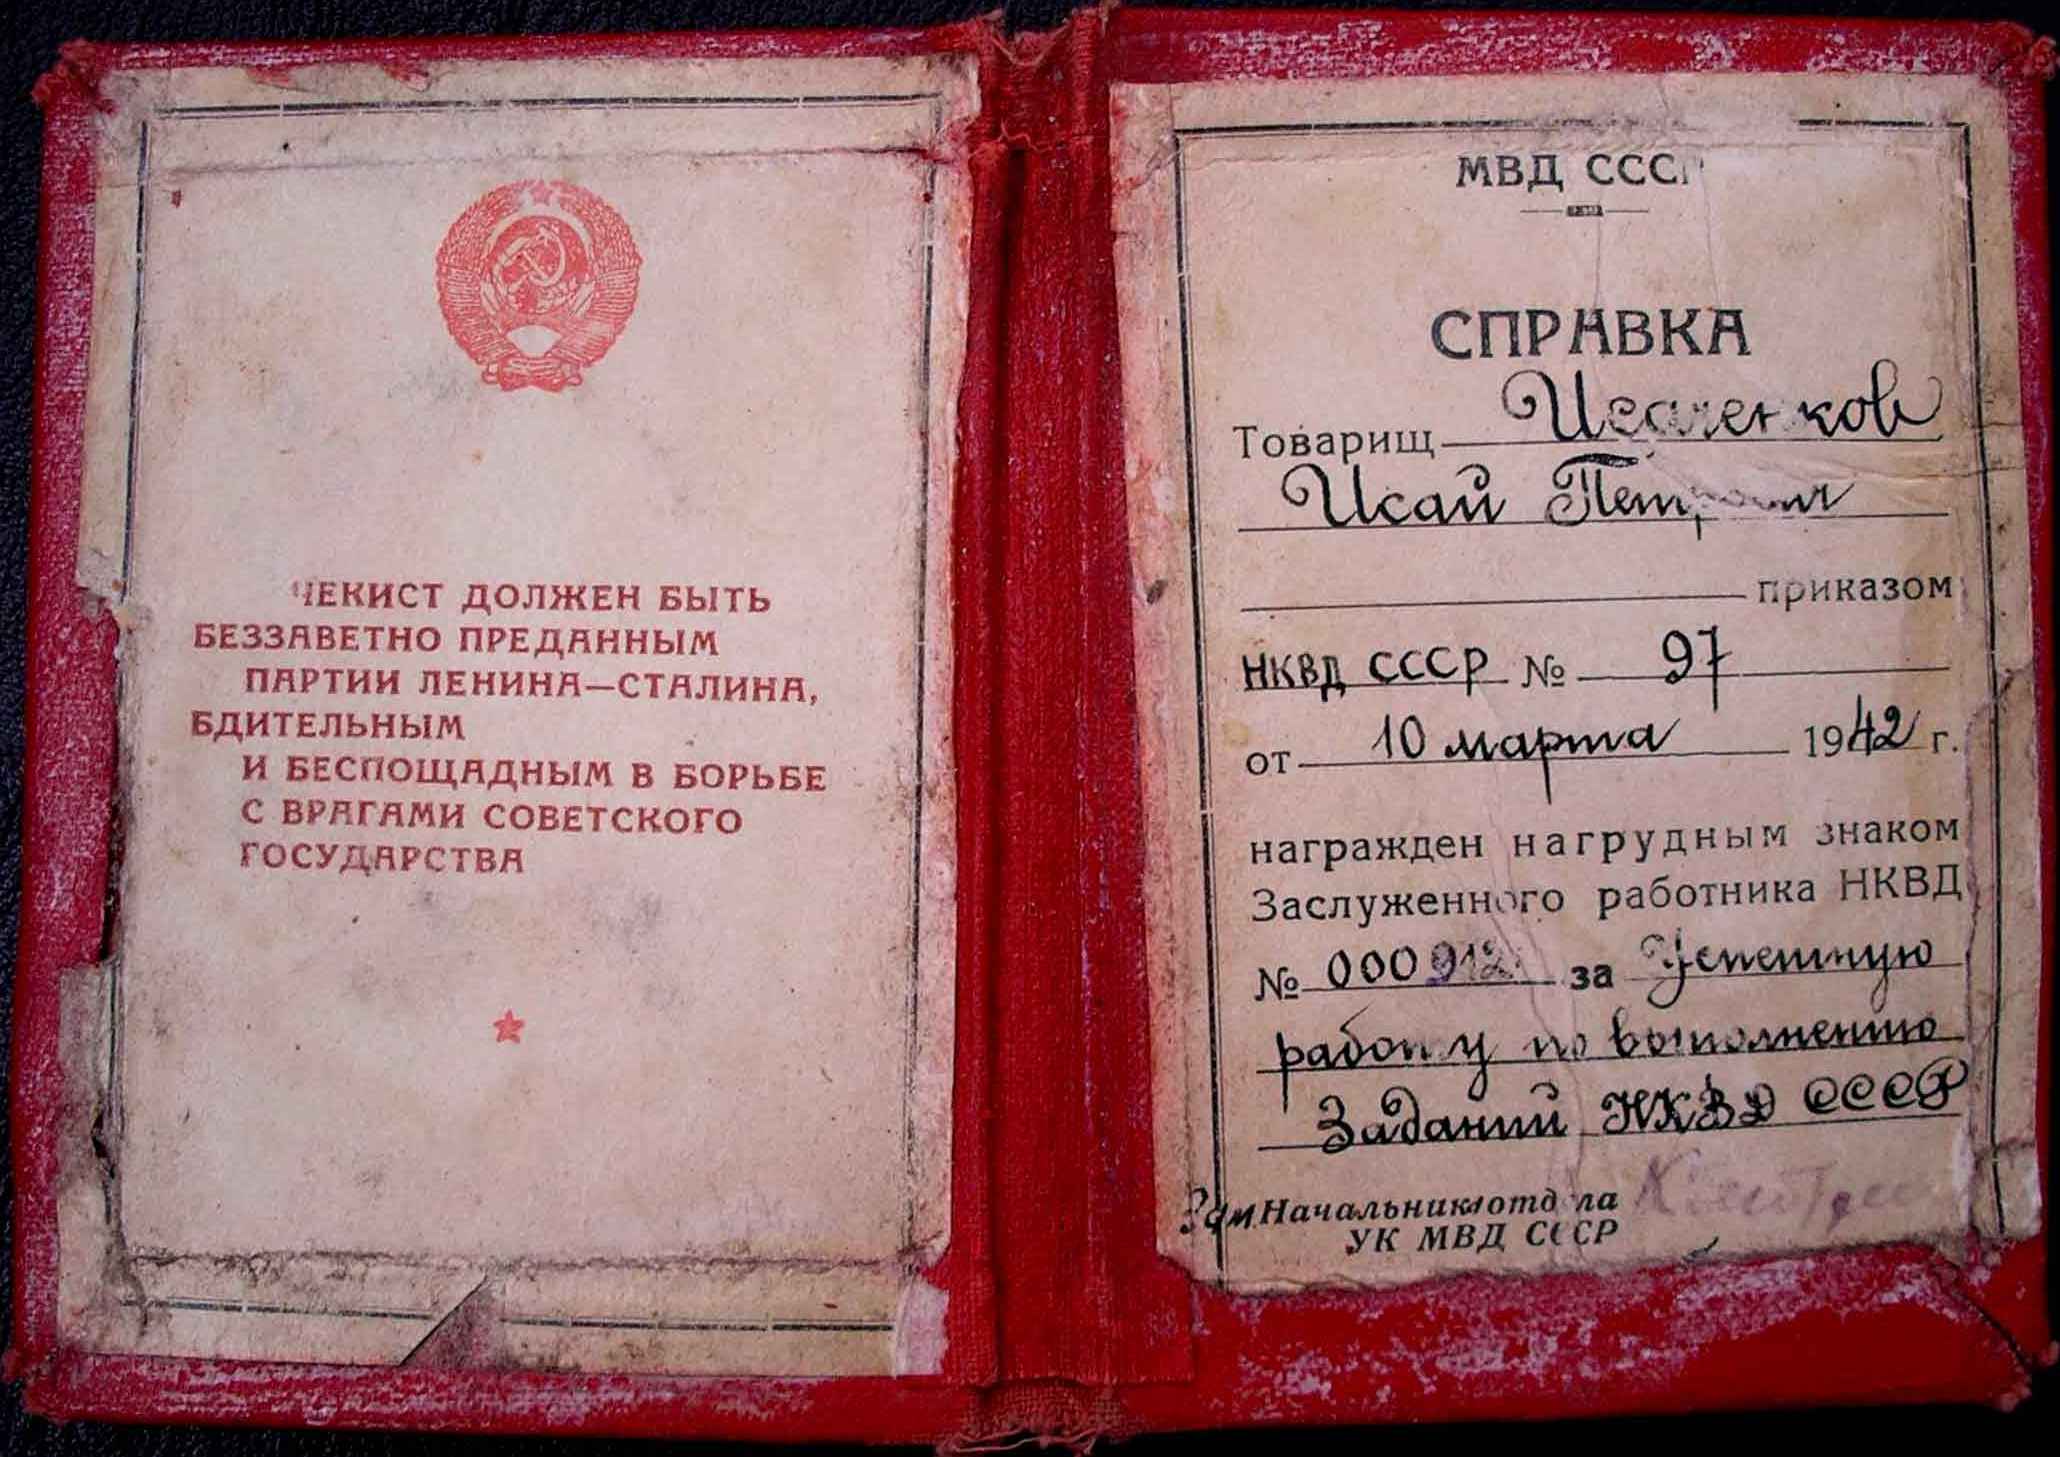 ЧЕКИСТ ДОЛЖЕН БЫТЬ
БЕЗЗАВЕТНО ПРЕДАННЫМ
ПАРТИИ ЛЕНИНА—СТАЛИНА,
БДИТЕЛЬНЫМ
И БЕСПОЩАДНЫМ В БОРЬБЕ
С ВРАГАМИ СОВЕТСКОГО
ГОСУДАРСТВА
МВД СССР
СПРАВКА
Товарищ
Исай Петрович
приказом
НКВД СССР № 97
от 10 марта 1942 г.
награжден нагрудным знаком
Заслуженного работника НКВД
№ 000912 за Успешную
работу по выполнению
Заданий НКВД СССР
Зам. Начальника отдела
УК МВД СССР